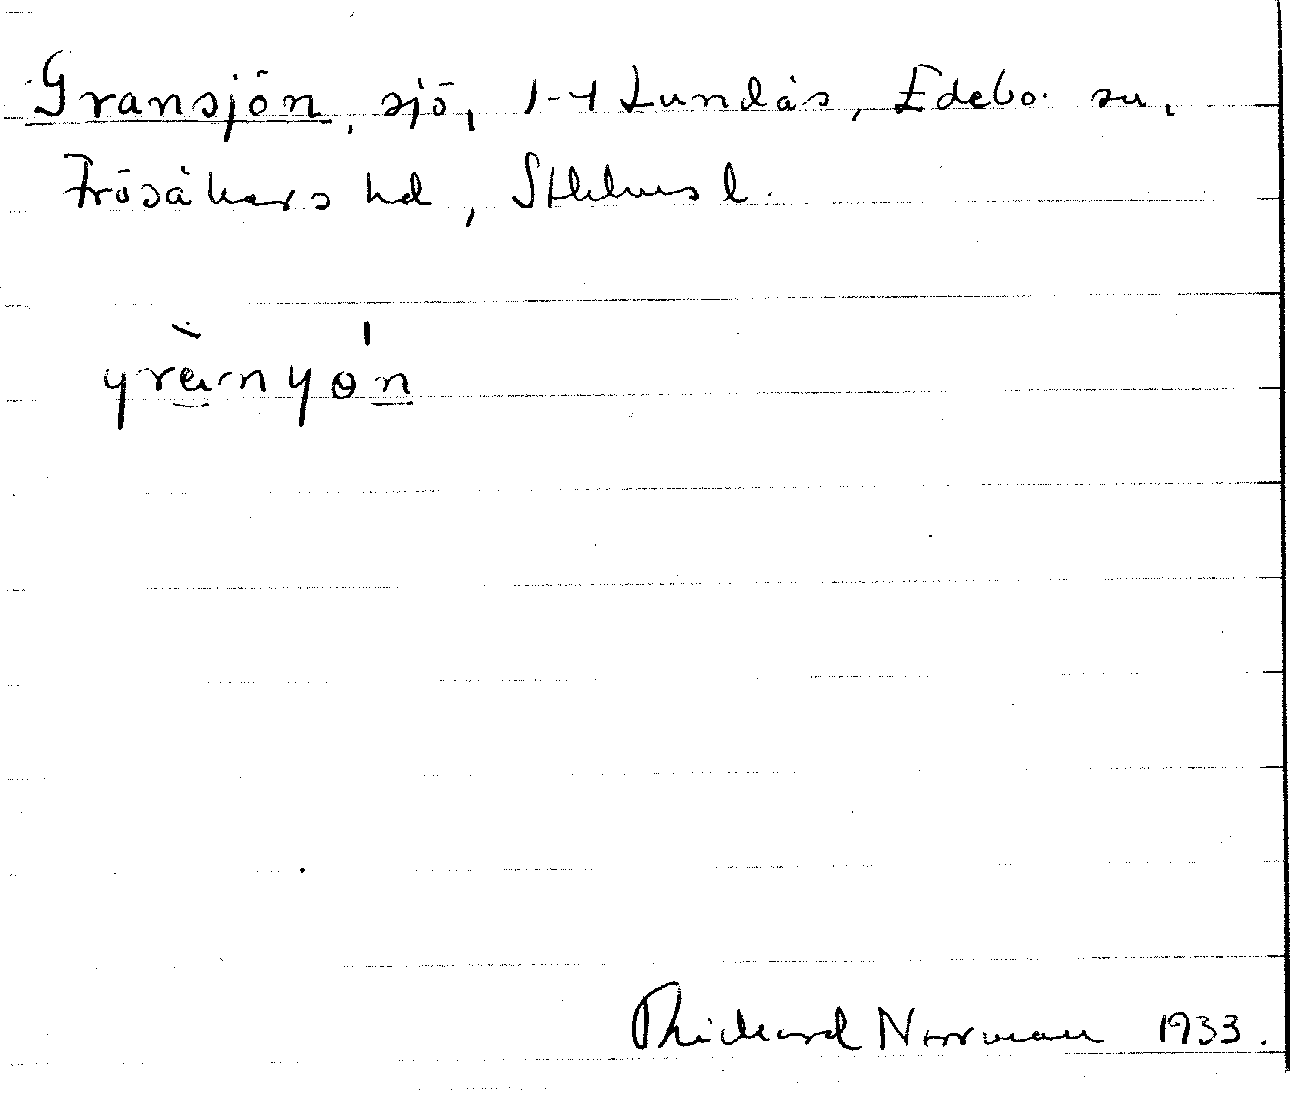 Gransjön, sjö, 1-4 Lundås, Edebo sn,
Frösåkers hd, Sthlms l.
Rickard Norrman 1933.